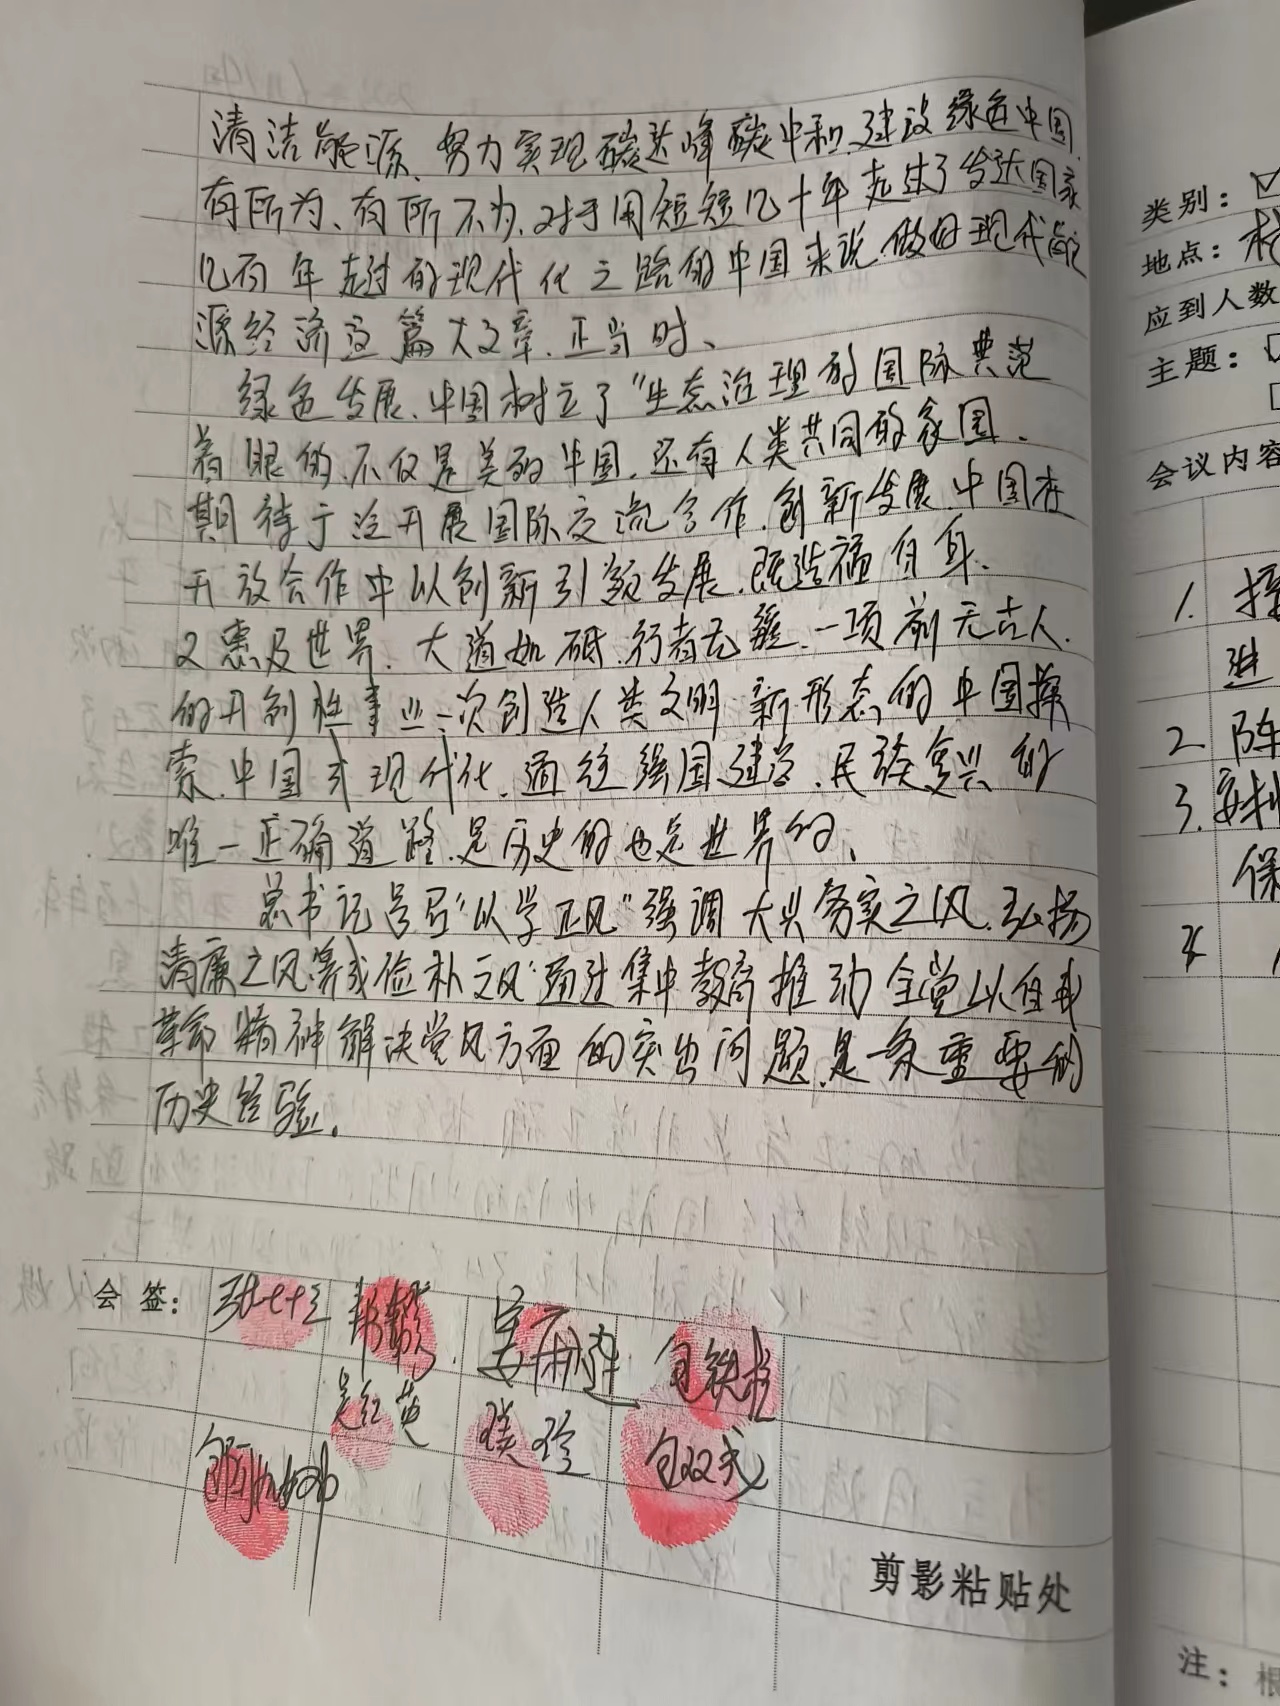 清洁能源、努力实现碳达峰碳中和、建设绿色中国、
有所为、有所不为、对于用短短几十年走过了发达国家
几百年走过的现代化之路的中国来说、做好现代能
源经济这篇大文章、正当时、
绿色发展、中国树立了“生态治理的国际典范
着眼的、不仅是美丽中国、还有人类共同的家园、
期待于泛开展国际交流合作、创新发展、中国在
开放合作中以创新引领发展、既造福自身、
又惠及世界、大道如砥、行者无疆、一项前无古人、
的开创性事业、一次创造人类文明新形态的中国探
索、中国式现代化、通往强国建设、民族复兴的
唯一正确道路、是历史的也是世界的、
总书记号召“以学正风”强调大兴务实之风、弘扬
清廉之风、养成俭朴之风“通过集中教育推动全党以自我
革命精神解决党风方面的突出问题、是一条重要的
历史经验、
会签:
吴红英
包铁柱
剪影粘贴处
类别:
地点:
应到人数
主题:
会议内容
1.
进
2.
3. 安排
保
4
注: 根